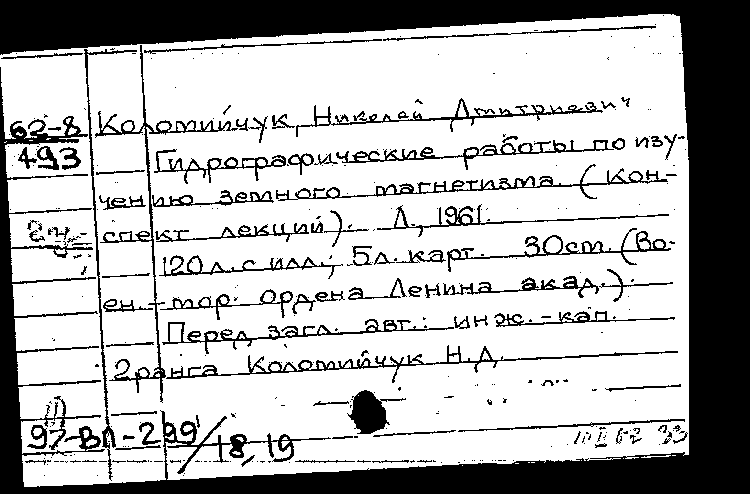 62-8
493
Коломийчук, Николай Дмитриевич
Гидрографические работы по изу-
чению земного магнетизма. (Кон-
спект лекций). Л., 1961.
120 л. с илл.; 5 л. карт. 30 см. (Во-
ен.-мор. ордена Ленина акад.).
Перед загл. авт.: инж.-кап.
2 ранга Коломийчук Н.Д.
97-ВП-299/18, 19